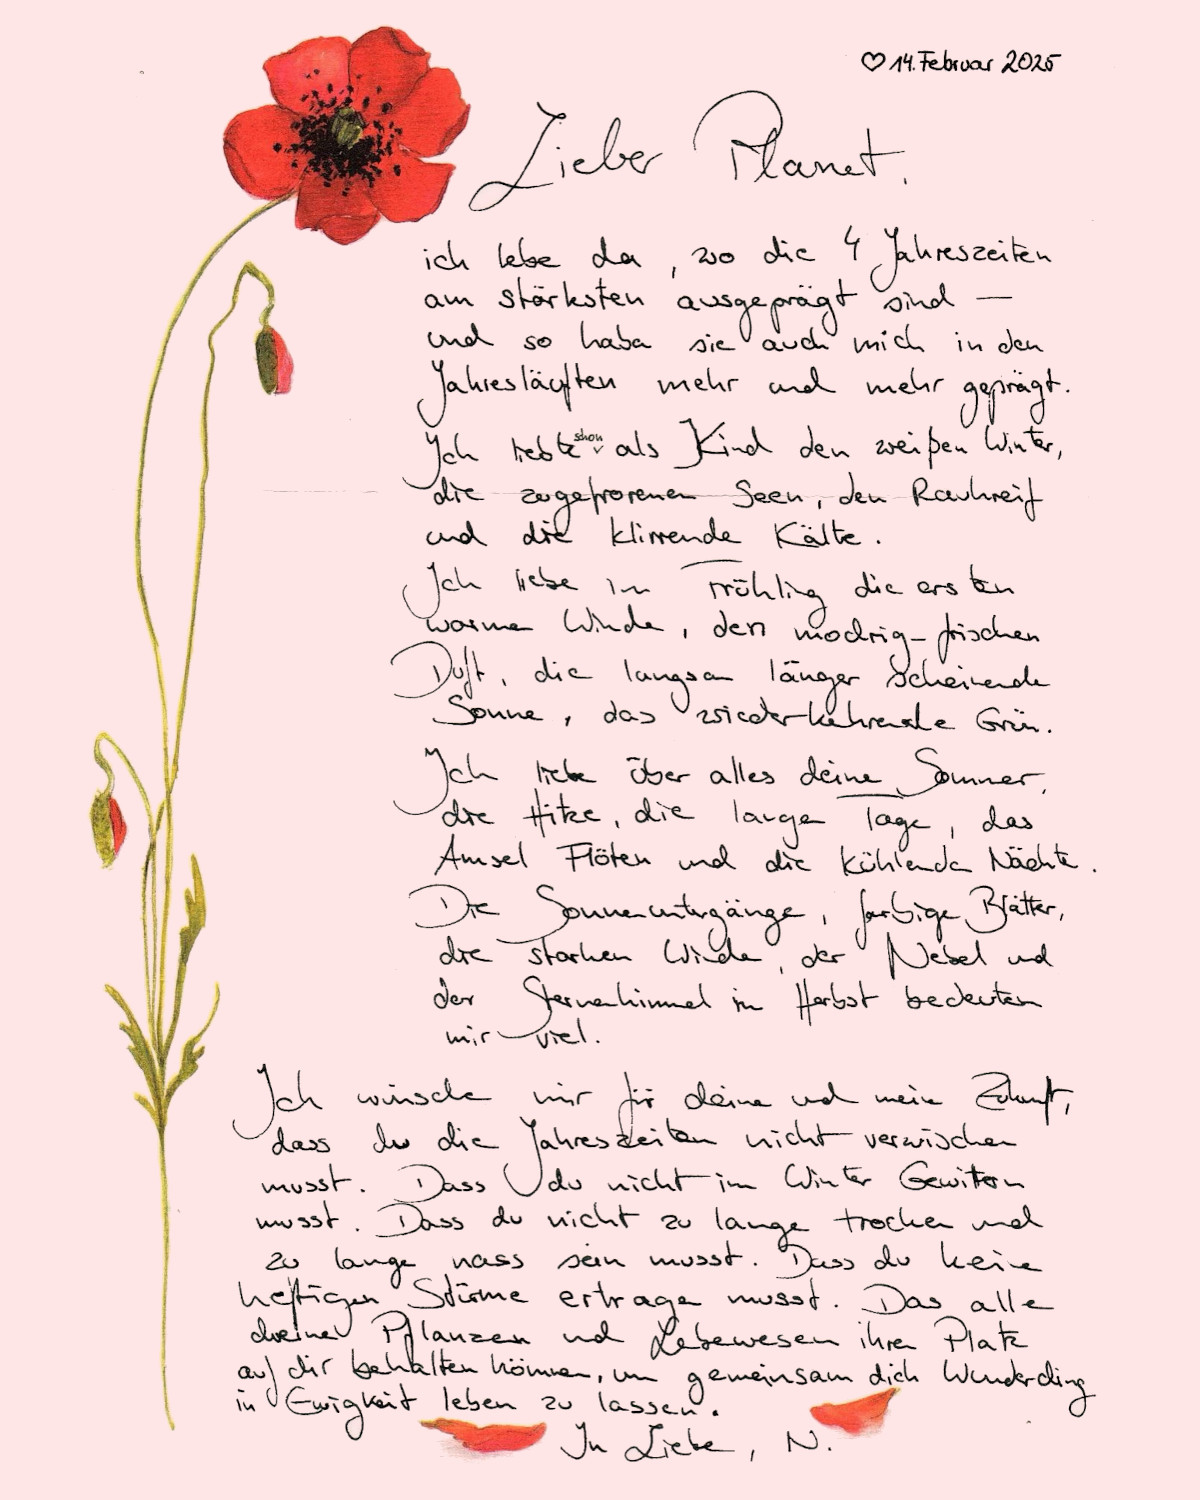 ♡ 14. Februar 2025
Lieber Planet,
ich lebe da, wo die 4 Jahreszeiten
am stärksten ausgeprägt sind –
und so haben sie auch mich in den
Jahresläuften mehr und mehr geprägt.
Ich liebte schon als Kind den weißen Winter,
die zugefrorenen Seen, den Rauhreif
und die klirrende Kälte.
Ich liebe im Frühling die ersten
warmen Winde, den modrig-frischen
Duft, die langsam länger scheinende
Sonne, das wiederkehrende Grün.
Ich liebe über alles deine Sommer,
die Hitze, die langen Tage, das
Amsel Flöten und die kühlenden Nächte.
Die Sonnenuntergänge, farbige Blätter,
die starken Winde, der Nebel und
der Sternenhimmel im Herbst bedeuten
mir viel.
Ich wünsche mir für deine und meine Zukunft,
dass du die Jahreszeiten nicht verwischen
musst. Dass du nicht im Winter Gewittern
musst. Dass du nicht zu lange trocken und
zu lange nass sein musst. Dass du keine
heftigen Stürme ertragen musst. Das alle
deine Pflanzen und Lebewesen ihren Platz
auf dir behalten können, um gemeinsam dich Wunderding
in Ewigkeit leben zu lassen.
In Liebe, N.